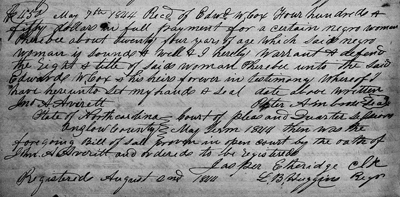 $450 May 7th 1844 Recd of Edwd W Cox Four hundred &
fifty dollars in full payment for a certain negro woman
Pheobe about twenty four years of age which said negro
woman is sound & well & I hereby Warrant & defend
the right & title of said woman Pheobe unto the said
Edward W Cox & his heirs forever in testimony Whereof I
have hereunto set my hand & seal date above written
Jno A Averett Peter Ambrose Seal
State of North carolina court of pleas and Quarter Sessions
Onslow County May Term 1844 then was the
foregoing Bill of Sale proven in open court by the oath of
John A Averitt and ordered to be registered
Jasper Etheridge Clk
Registered August 2nd 1844 L B Huggins Regr